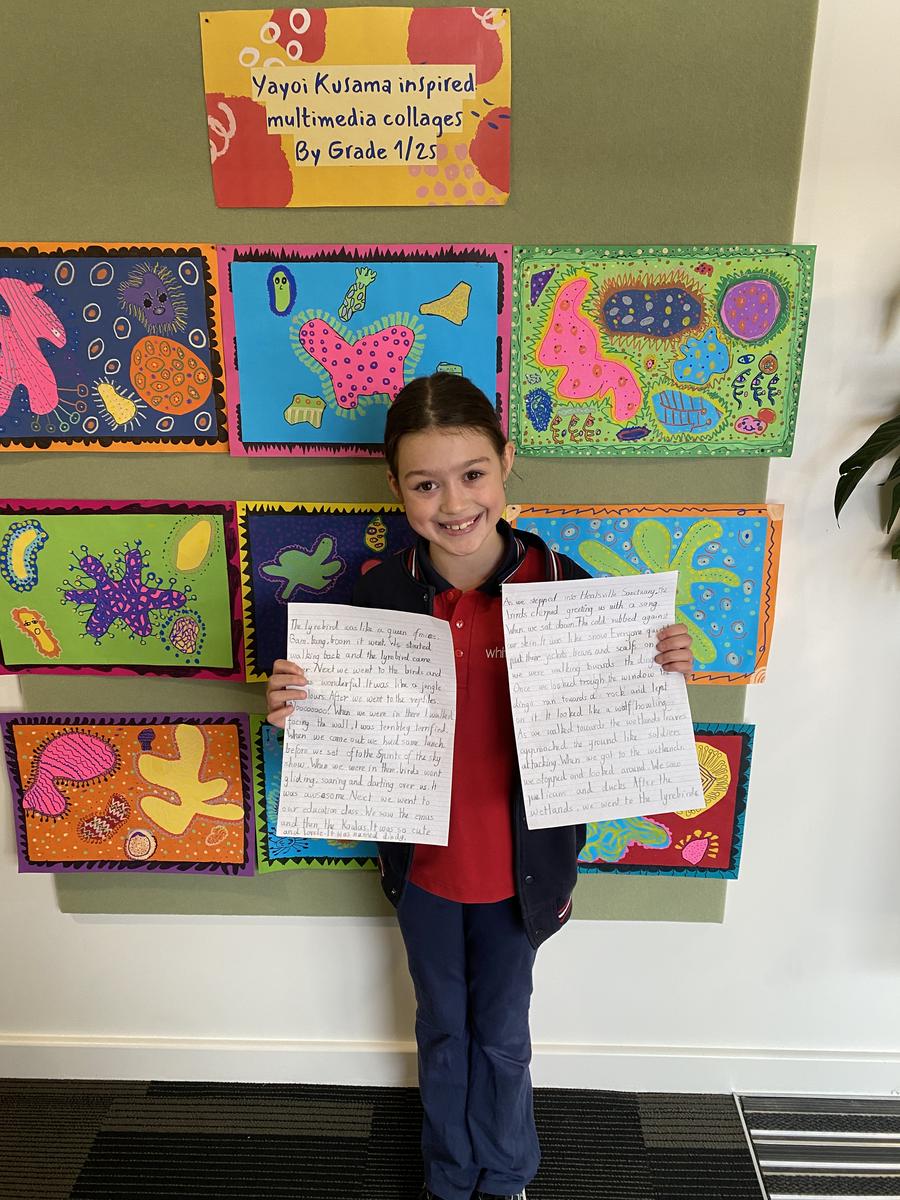 Yayoi Kusama inspired
multimedia collages
By Grade 1/2s
whi
The lyrebird was like a queen of mics.
Bam, bang, boom it went. We started
walking back and the lyrebird came
Next we went to the birds and
wonderful. It was like a jingle
After we went to the reptiles
When we were in there I walked
facing the wall, I was terribley terrifed.
When we came out we had some lunch
before we set of to the Spirits of the sky
show. When we were in there, birds went
gliding, soaring and darting over us. It
was awesome. Next we went to
our education class. We saw the emus
and then the Koalas. It was so cute
and It was named dindy.
As we stepped into Healsville Sanctuary, the
birds chirped greeting us with a song.
When we sat down the cold rubbed against
our skin. It was like snow. Everyone
put there jackets, beans and scalfs on
we were walking towards the
Once we looked trough the window
dingo ran towards a rock and lept
on it. It looked like a wolf howling.
As we walked towards the wetlands leaves
approached the ground like soldiers
attacking. When we got to the wetlands
we stopped and looked around. We saw
pelicans and ducks. After the
wetlands, we went to the lyrebirds